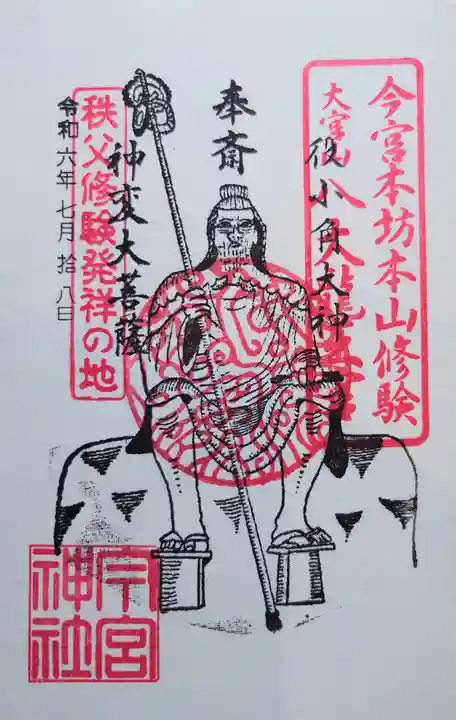 今宮本坊本山修験
大宮山八大龍王宮
役小角大神
奉斎
神変大菩薩
秩父修験発祥の地
令和六年七月拾八日
今宮神社